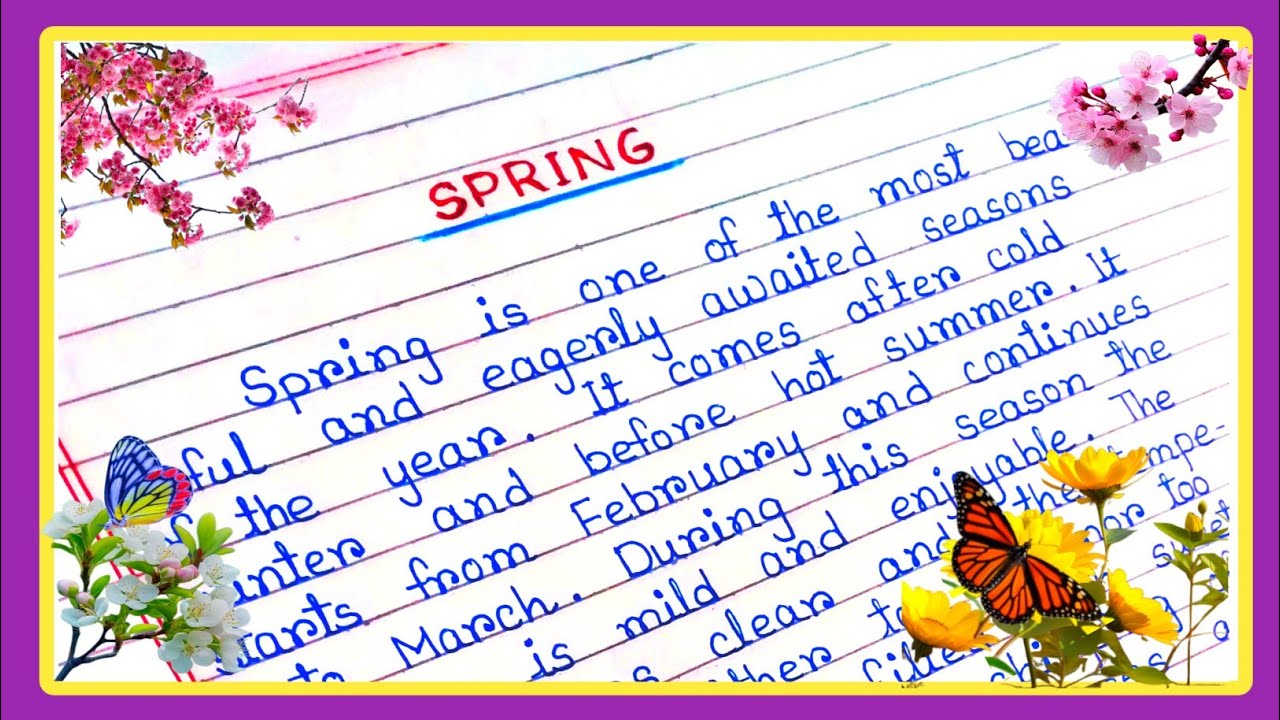 SPRING
Spring is one of the most bea
ful and eagerly awaited seasons
the year. It comes after cold
and before hot summer. It
starts from February and continues
to March. During this season the
is mild and enjoyable. The
clear and the
too